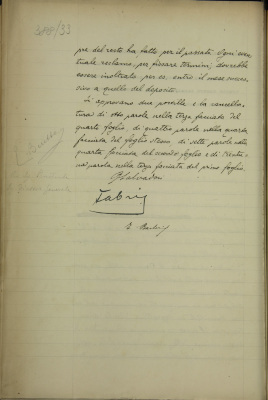 388/33
pre del resto ha fatto per il passato. Ogni even-
tuale reclamo, per fissare termini, dovrebbe
essere inoltrato per es. entro il mese succes-
sivo a quello del deposito.
Si approvano due postille e la cancella-
tura di otto parole nella terza facciata del
quarto foglio, di quattro parole nella quarta
facciata del foglio stesso di sette parole nella
quarta facciata del secondo foglio e di trenta-
parole nella terza facciata del primo foglio.
Fabriz